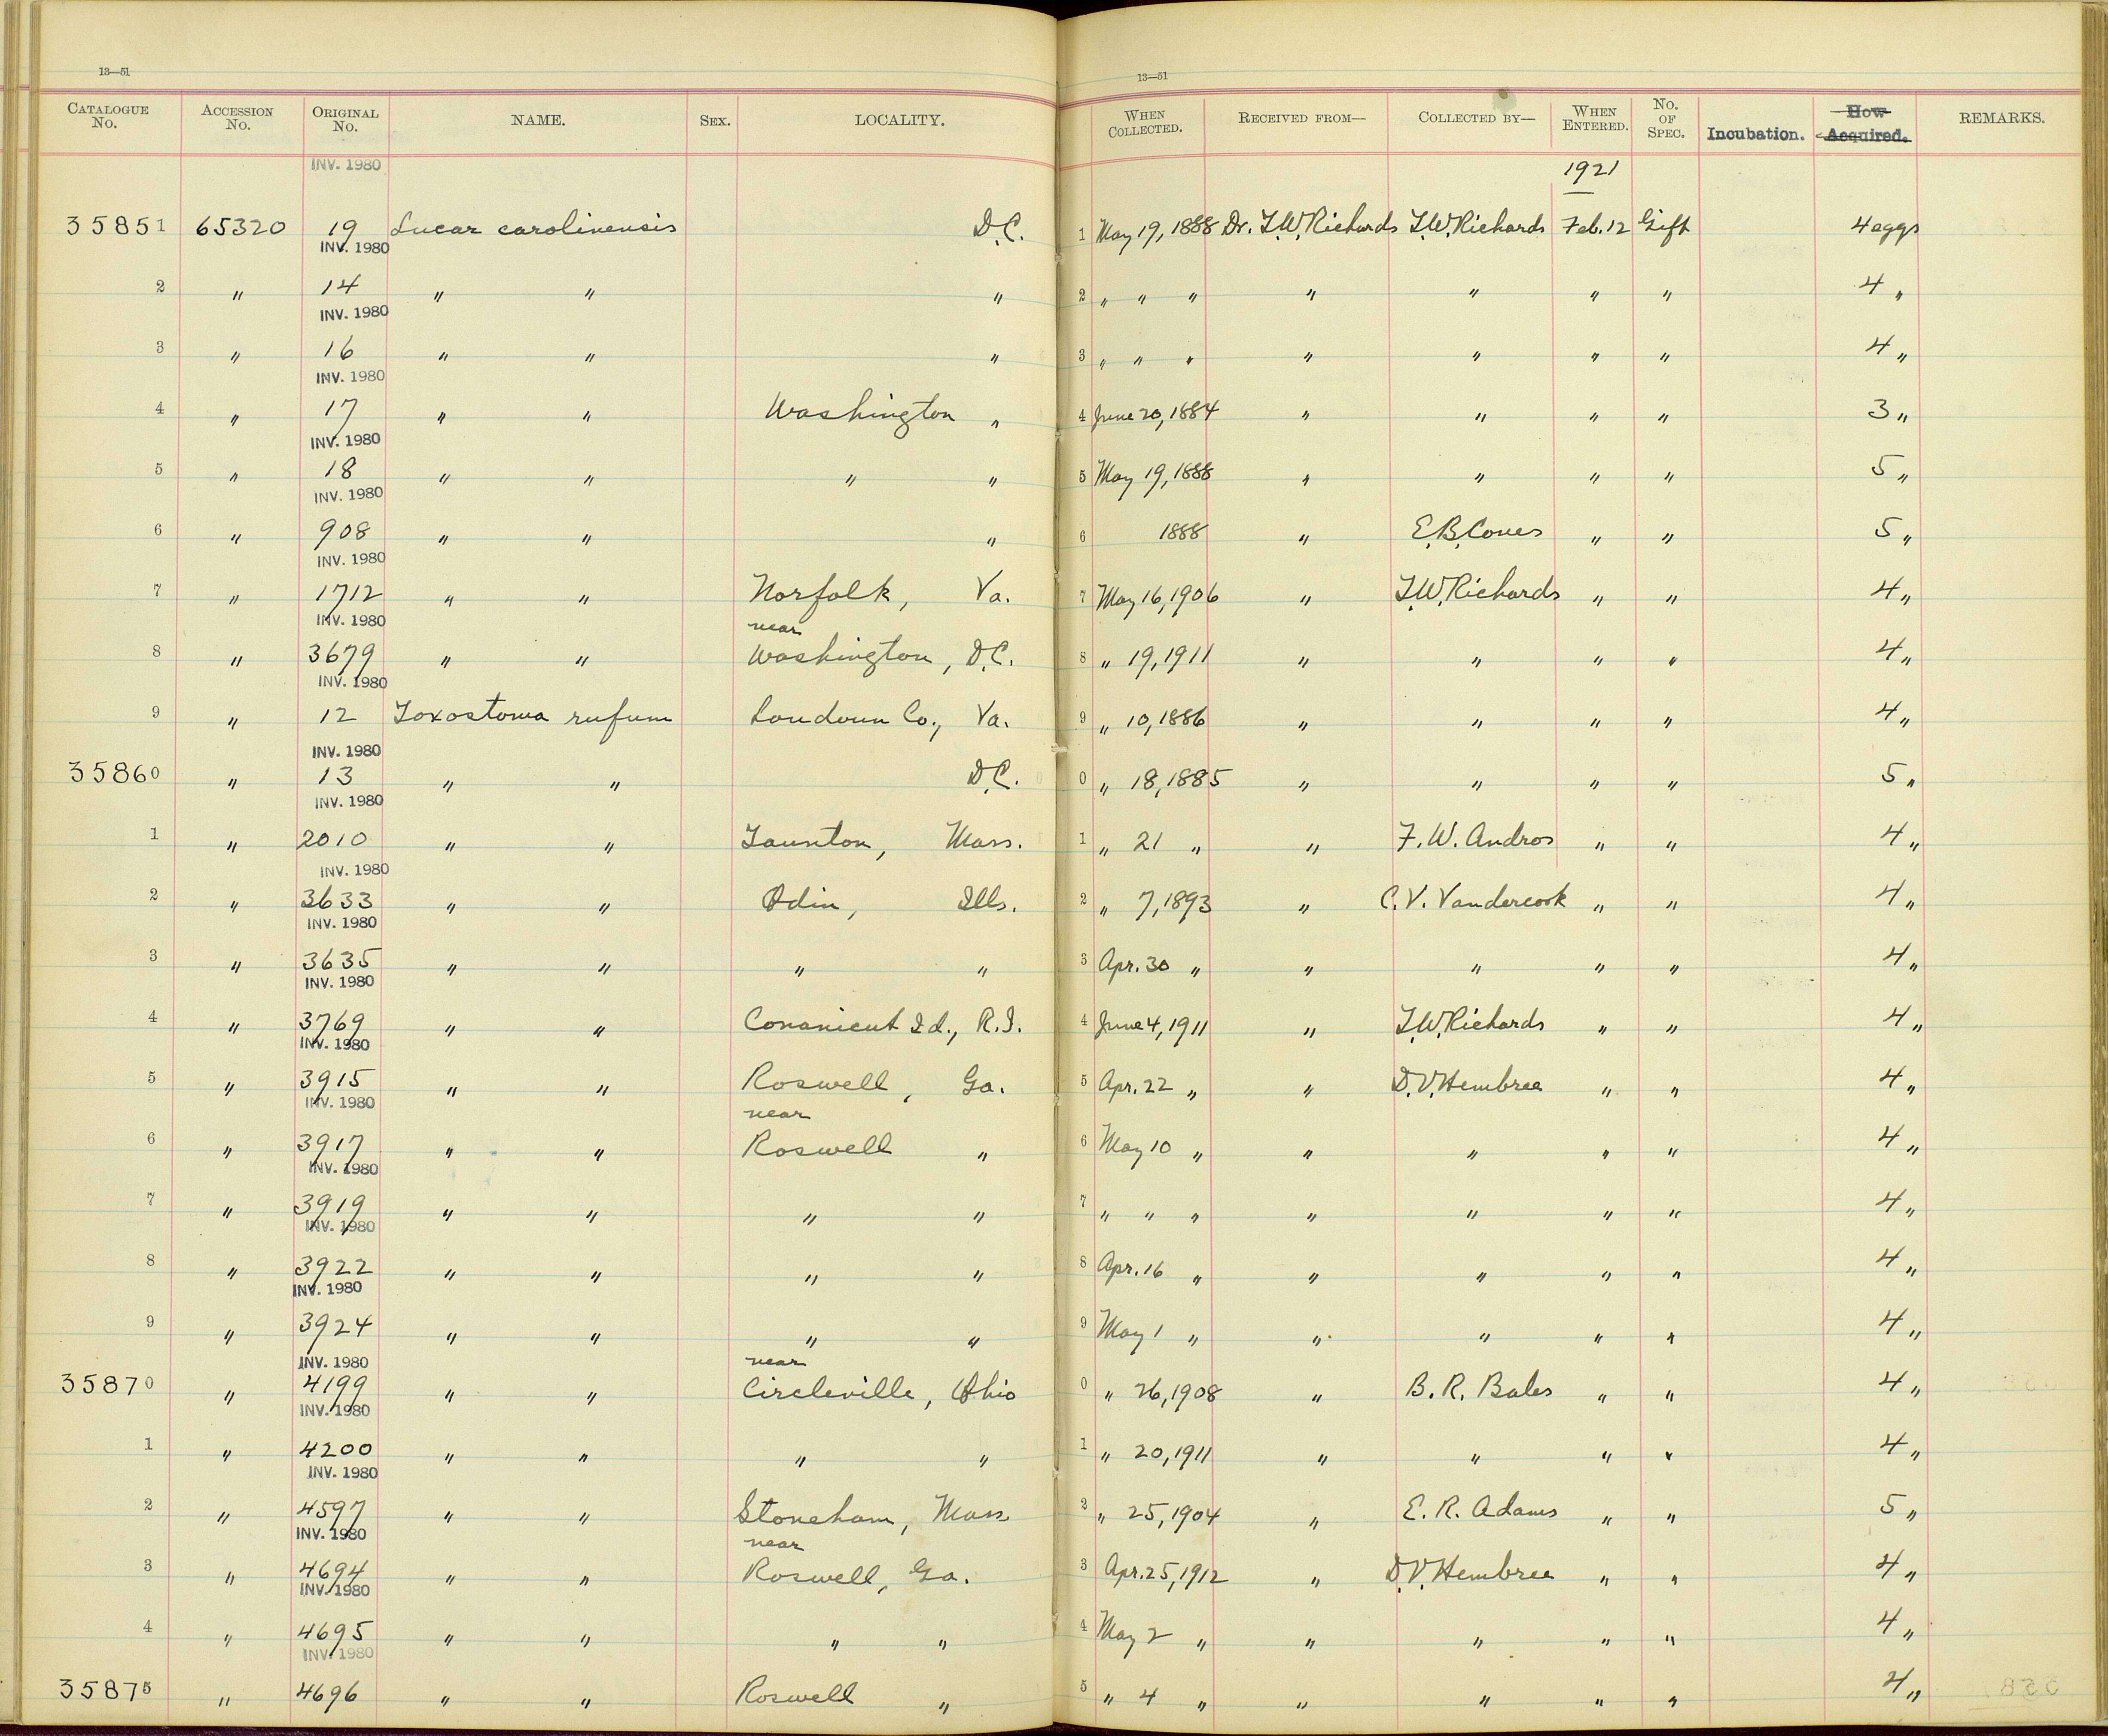 13—51 13—51
CATALOGUE No. ACCESSION No. ORIGINAL No. NAME. SEX. LOCALITY. WHEN COLLECTED. RECEIVED FROM— COLLECTED BY— WHEN ENTERED. No. OF SPEC. Incubation. How Acquired. REMARKS.
INV. 1980 1921
35851 65320 19 Lucar carolinensis D.C. 1 May 19, 1888 Dr. T.W. Richards T.W. Richards Feb. 12 Gift 4 eggs
INV. 1980
2 " 14 " " " 2 " " " " " " " 4 "
INV. 1980
3 " 16 " " " 3 " " " " " " " 4 "
INV. 1980
4 " 17 " " Washington " 4 June 20, 1884 " " " " 3 "
INV. 1980
5 " 18 " " " " 5 May 19, 1888 " " " " 5 "
INV. 1980
6 " 908 " " " 6 1888 " E.B. Coues " " 5 "
INV. 1980
7 " 1712 " " Norfolk, Va. 7 May 16, 1906 " T.W. Richards " " 4 "
INV. 1980 near
8 " 3679 " " Washington, D.C. 8 " 19, 1911 " " " " 4 "
INV. 1980
9 " 12 Toxostoma rufum Loudoun Co., Va. 9 " 10, 1886 " " " " 4 "
INV. 1980
35860 " 13 " " D.C. 0 " 18, 1885 " " " " 5 "
INV. 1980
1 " 2010 " " Taunton, Mass. 1 " 21 " " F. W. Andros " " 4 "
INV. 1980
2 " 3633 " " Odin, Ills. 2 " 7, 1893 " C. V. Vandercook " " 4 "
INV. 1980
3 " 3635 " " " " 3 Apr. 30 " " " " " 4 "
INV. 1980
4 " 3769 " " Conanicut Id., R.I. 4 June 4, 1911 " T.W. Richards " " 4 "
INV. 1980
5 " 3915 " " Roswell, Ga. 5 Apr. 22 " " D.V. Hembree " " 4 "
INV. 1980 near
6 " 3917 " " Roswell " 6 May 10 " " " " " 4 "
INV. 1980
7 " 3919 " " " " 7 " " " " " " " 4 "
INV. 1980
8 " 3922 " " " " 8 Apr. 16 " " " " " 4 "
INV. 1980
9 " 3924 " " " " 9 May 1 " " " " " 4 "
INV. 1980 near
35870 " 4199 " " Circleville, Ohio 0 " 26, 1908 " B. R. Bales " " 4 "
INV. 1980
1 " 4200 " " " " 1 " 20, 1911 " " " " 4 "
INV. 1980
2 " 4597 " " Stoneham, Mass 2 " 25, 1904 " E. R. Adams " " 5 "
INV. 1980 near
3 " 4694 " " Roswell, Ga. 3 Apr. 25, 1912 " D.V. Hembree " " 4 "
INV. 1980
4 " 4695 " " " " 4 May 2 " " " " " 4 "
INV. 1980
35875 " 4696 " " Roswell " 5 " 4 " " " " " 4 "